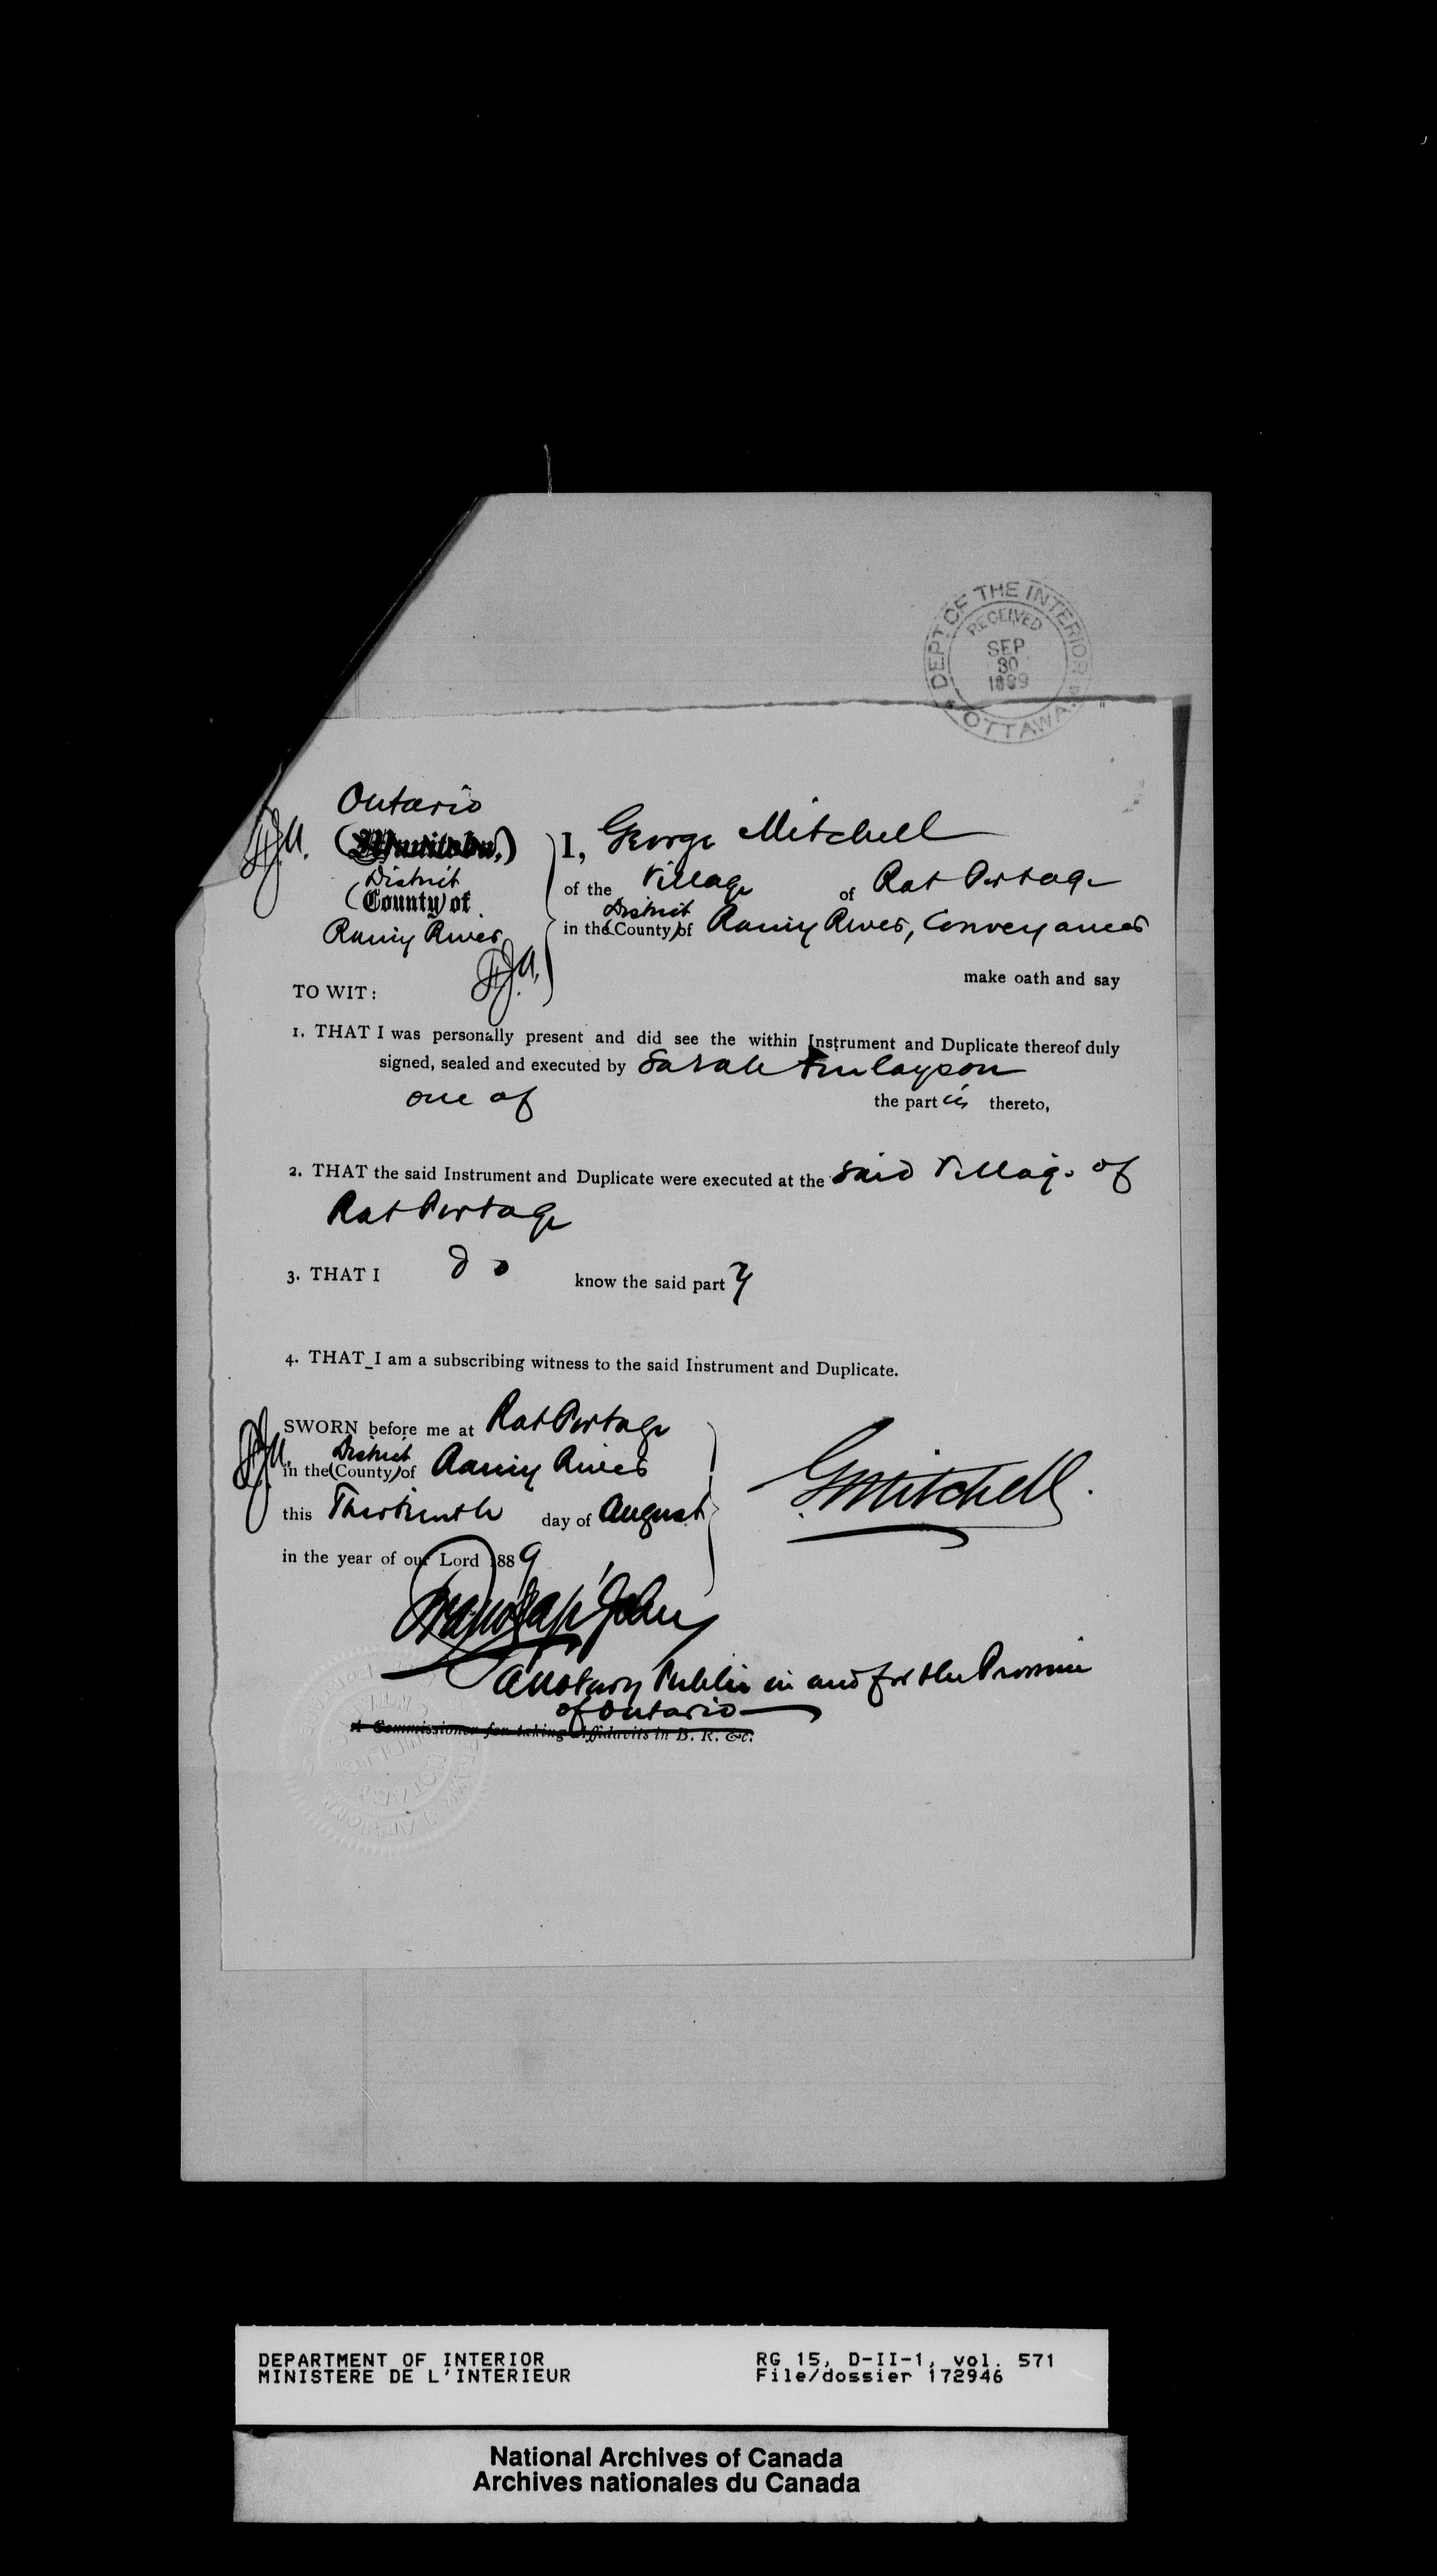 DEPT OF THE INTERIOR
RECEIVED
SEP
30
1889
OTTAWA
Ontario
(Manitoba,)
District
(County) of
Rainy River
TO WIT:
I, George Mitchell
of the Village of Rat Portage
District
in the (County) of Rainy River, Conveyancer
make oath and say
1. THAT I was personally present and did see the within Instrument and Duplicate thereof duly
signed, sealed and executed by Sarah Finlayson
one of the parties thereto,
2. THAT the said Instrument and Duplicate were executed at the said Village of
Rat Portage
3. THAT I do know the said party
4. THAT I am a subscribing witness to the said Instrument and Duplicate.
SWORN before me at Rat Portage
District
in the (County) of Rainy River
this Thirteenth day of August
in the year of our Lord 1889
G Mitchell.
A Notary Public in and for the Province
of Ontario
A Commissioner for taking Affidavits in B. R. &c.
DEPARTMENT OF INTERIOR
MINISTERE DE L'INTERIEUR
RG 15, D-II-1, vol. 571
File/dossier 172946
National Archives of Canada
Archives nationales du Canada